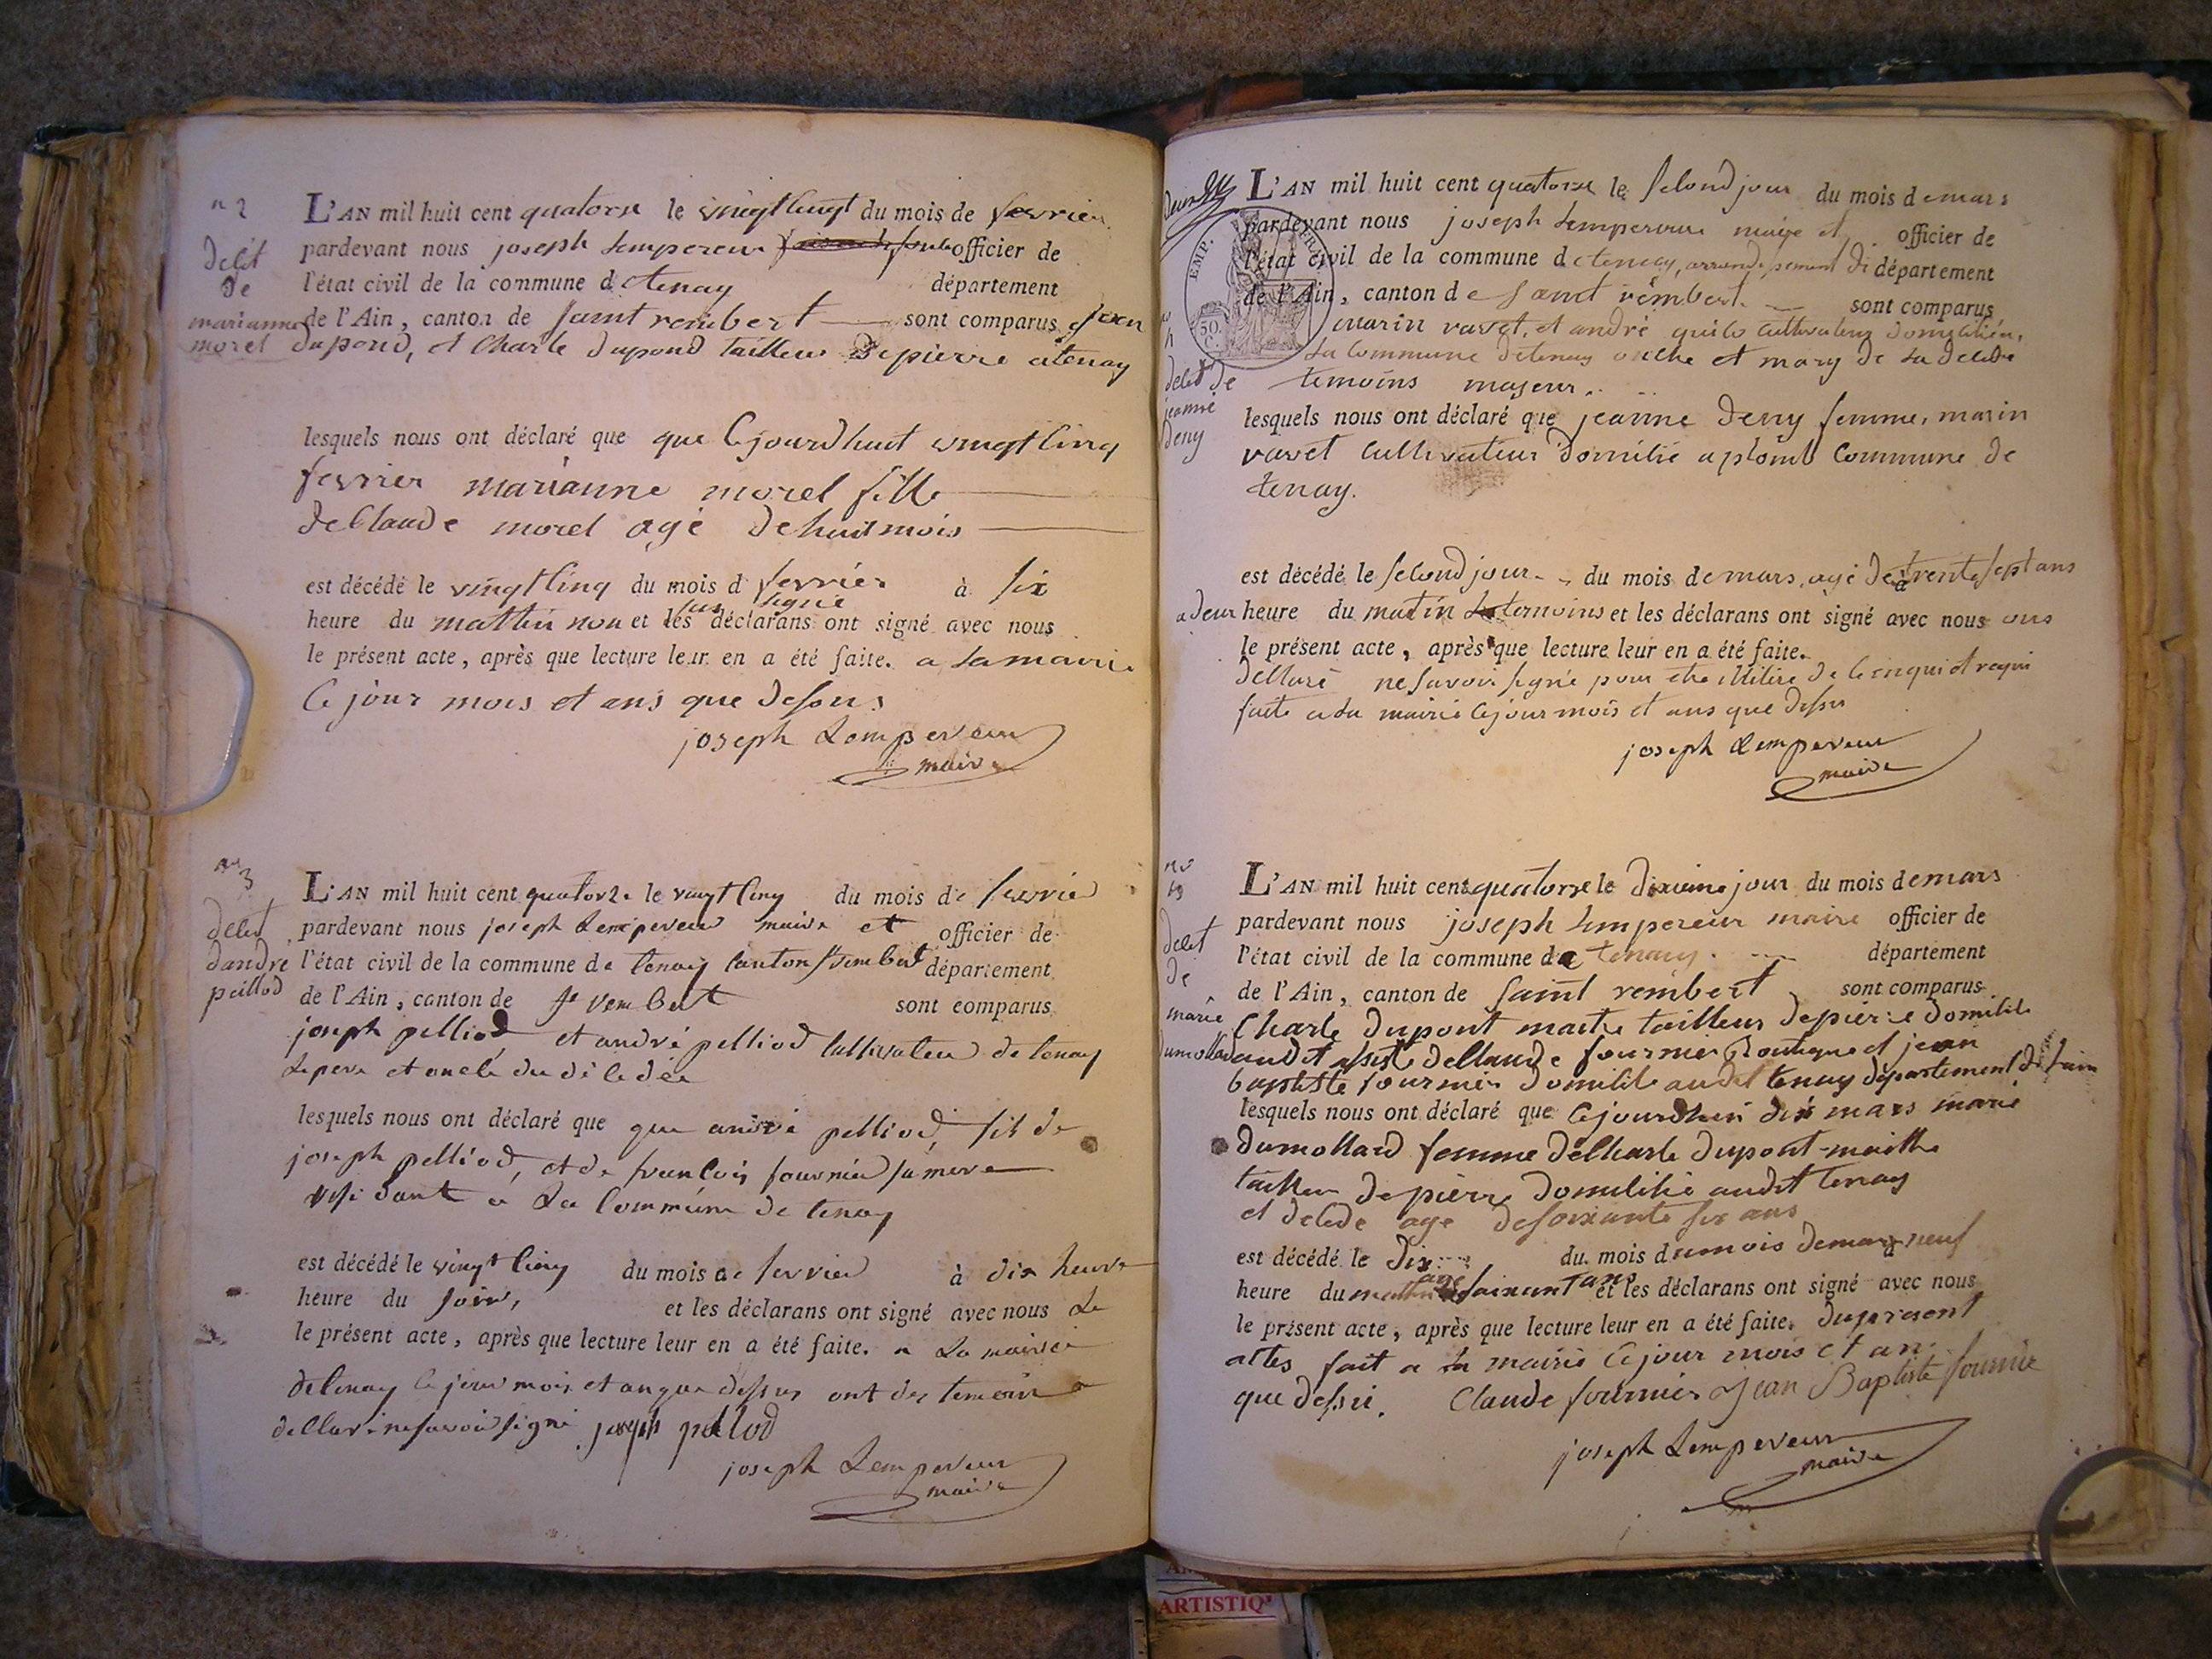 n 2
L'AN mil huit cent quatorse le vingtcinqt du mois de fevrier
pardevant nous joseph Lempereur officier de
decet
de
marianne
morel
l'état civil de la commune d etenay département
de l'Ain, canton de saint rembert sont comparus jean
dupond, et Charle dupond tailleur de pierre atenay
lesquels nous ont déclaré que que Cejourdhuit vingtcinq
fevrier marianne morel fille
de Claude morel agé de huit mois
est décédé le vingtcinq du mois d fevrier à six
heure du mattin non signe et les déclarans ont signé avec nous
le présent acte, après que lecture leur en a été faite. a Lamairie
Ce jour mois et ans que dessus
joseph Lempereur
maire
n 3
decet
dandre
peillod
L'AN mil huit cent quatorze le vingt cinq du mois de fevrier
pardevant nous joseph Lempereur maire et officier de
l'état civil de la commune de tenay canton st rembert département
de l'Ain, canton de st rembert sont comparus
joseph pelliod et andré pelliod cultivateur de tenay
Le pere et oncle du décédée
lesquels nous ont déclaré que que andré pelliod, fils de
joseph pelliod, et de francois fournier sa mere
residant a La Commune de tenay
est décédé le vingt cinq du mois de fevrier à dix heure
heure du soir, et les déclarans ont signé avec nous Le
le présent acte, après que lecture leur en a été faite. a La mairie
de tenay le jour mois et an que dessus ont des temoin
declaré ne savoir signé joseph pellod
joseph Lempereur
maire
L'AN mil huit cent quatorze le second jour du mois de mars
pardevant nous joseph Lempereur maire et officier de
l'état civil de la commune d etenay, arrondissement di département
de l'Ain, canton de saint rembert. sont comparus
EMP. FRAN
50
C.
marin ravet, et andré cultivateur domicilié,
La Commune de tenay oncle et mary de La décédé
temoins majeur.
decet de
jeanne
deny
lesquels nous ont déclaré que jeanne deny femme, marin
ravet Cultivateur domicilié a plomb Commune de
tenay.
est décédé le second jour du mois de mars, agé de trente sept ans
a deux heure du matin Les temoins et les déclarans ont signé avec nous ons
le présent acte, après que lecture leur en a été faite.
declaré ne savoir signé pour etre de ce enquis et requi
faite a La mairie Cejour mois et ans que dessu
joseph Lempereur
maire
decet
de
marie
dumollard
L'AN mil huit cent quatorze le dixieme jour du mois de mars
pardevant nous joseph Lempereur maire officier de
l'état civil de la commune de tenay. département
de l'Ain, canton de saint rembert sont comparus
Charle dupont maitre tailleur de pierre domicilié
audit assisté de Claude fournier et jean
baptiste fournier domicilié audit tenay departement de Lain
lesquels nous ont déclaré que Cejourdhui dix mars marie
dumollard femme de Charle dupont maitre
tailleur de pierre domicilié audit tenay
et decede age de soixante six ans
est décédé le dix du mois d umois demars neuf
heure du mattin age soixant ans et les déclarans ont signé avec nous
le présent acte, après que lecture leur en a été faite. du present
actes fait a la mairie Cejour mois et an
que dessu. Claude fournier Jean Baptiste fournié
joseph Lempereur
maire
ARTISTIQ